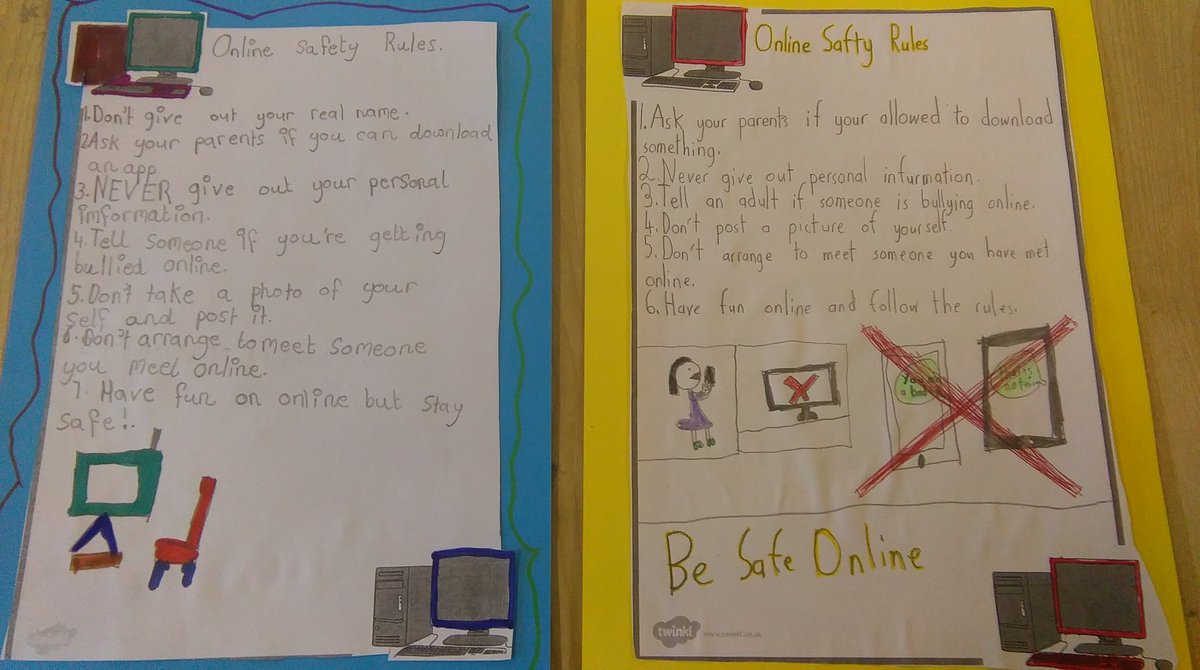 Online Safety Rules.
1.Don't give out your real name.
2Ask your parents if you can download
an app
3.NEVER give out your personal
imformation.
4.Tell someone if you're getting
bullied online.
5.Don't take a photo of your
self and post it.
6.Don't arrange to meet someone
you meet online.
7. Have fun on online but stay
safe!.
Online Safty Rules
1.Ask your parents if your allowed to download
something.
2.Never give out personal infurmation.
3.Tell an adult if someone is bullying online.
4.Don't post a picture of yourself.
5.Don't arrange to meet someone you have met
online.
6.Have fun online and follow the rules.
a
Be Safe Online
twinkl www.twinkl.co.uk